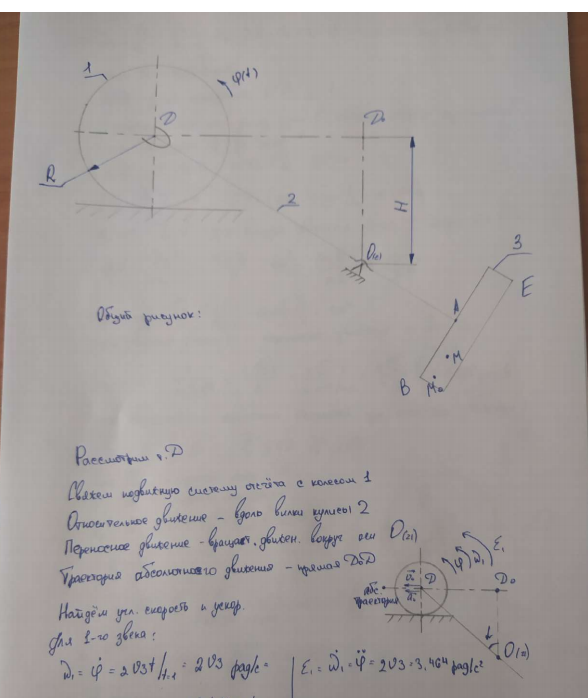 1
φ(t)
D
D₀
R
2
H
O(z)
3
E
A
M
B
M₀
Общий рисунок:
Рассмотрим т. D
Свяжем подвижную систему отсчёта с колесом 1
Относительное движение - вдоль вилки кулисы 2
Переносное движение - вращат. движен. вокруг оси O(z1)
Траектория абсолютного движения - прямая D₀D
Найдём угл. скорость и ускор.
для 1-го звена:
ω₁ = φ̇ = 2√3t/t=1 = 2√3 рад/с =
ε₁ = ω̇₁ = φ̈ = 2√3 = 3,464 рад/с²
ε₁
φ
ω₁
D
D₀
абс.
траектория
O(z)